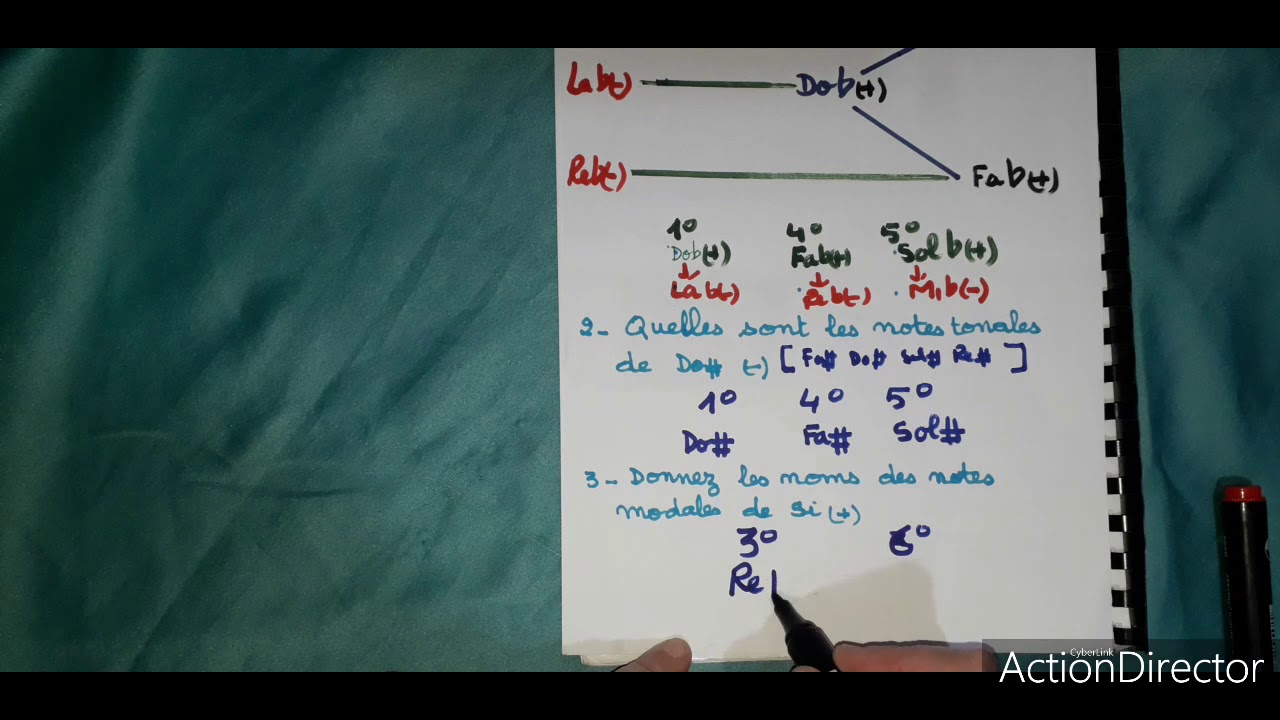 Lab(-) Dob(+)
Reb(-) Fab(+)
1° 4° 5°
Dob(+) Fab(+) Solb(+)
Lab(-) Reb(-) Mib(-)
2- Quelles sont les notes tonales
de Do# (-) [Fa# Do# Sol# Re# ]
1° 4° 5°
Do# Fa# Sol#
3- Donnez les noms des notes
modales de Si (+)
3° 6°
Re
CyberLink
ActionDirector